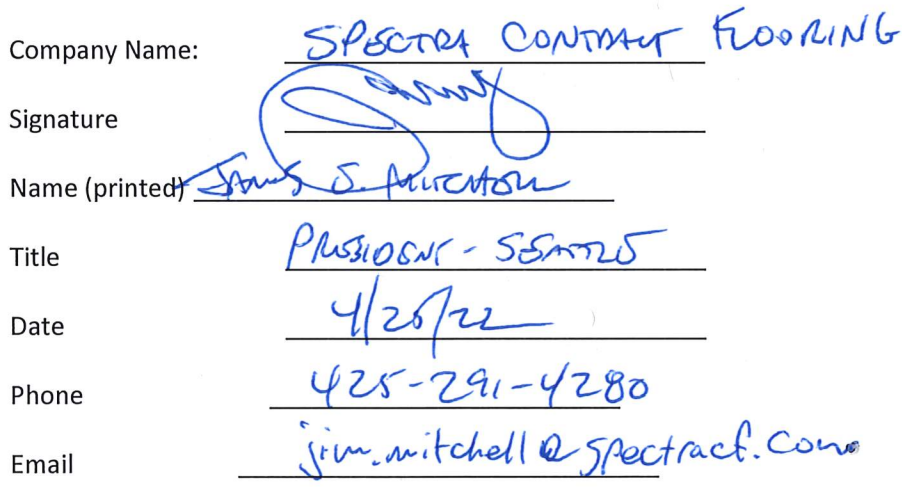 Company Name: SPECTRA CONTRACT FLOORING
Signature
Name (printed) JAMES S. MITCHELL
Title PRESIDENT - SEATTLE
Date 4/25/22
Phone 425-291-4280
Email jim.mitchell@spectracf.com